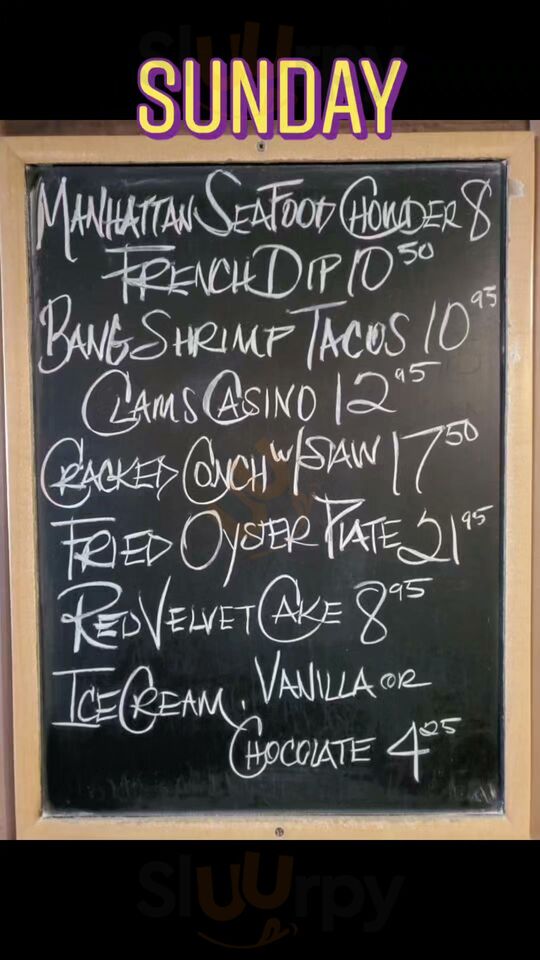 Sluurpy
SUNDAY
MANHATTAN SEAFOOD CHOWDER 8
FRENCH DIP 10 50
BANG SHRIMP TACOS 10 95
CLAMS CASINO 12 95
CRACKED CONCH W/SLAW 17 50
FRIED OYSTER PLATE 21 95
RED VELVET CAKE 8 95
ICE CREAM. VANILLA OR
CHOCOLATE 4 25
Sluurpy